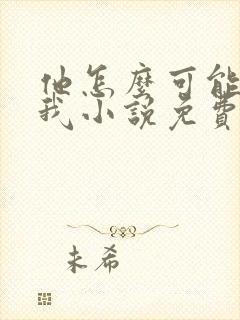 他怎麽可能
我小說免費
未希